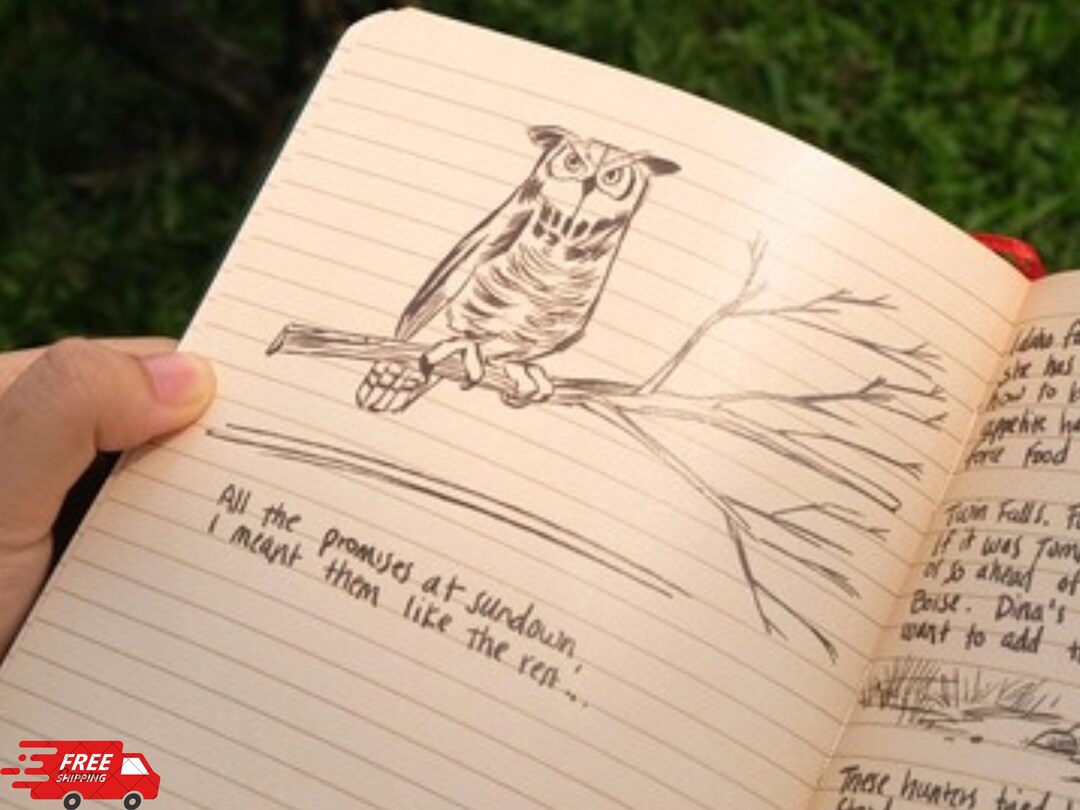 All the promises at sundown,
I meant them like the rest...
she has
how to
appetite
force Food
Twin Falls.
If it was
or so ahead of
Boise. Dina's
want to add
These hunters
FREE
SHIPPING